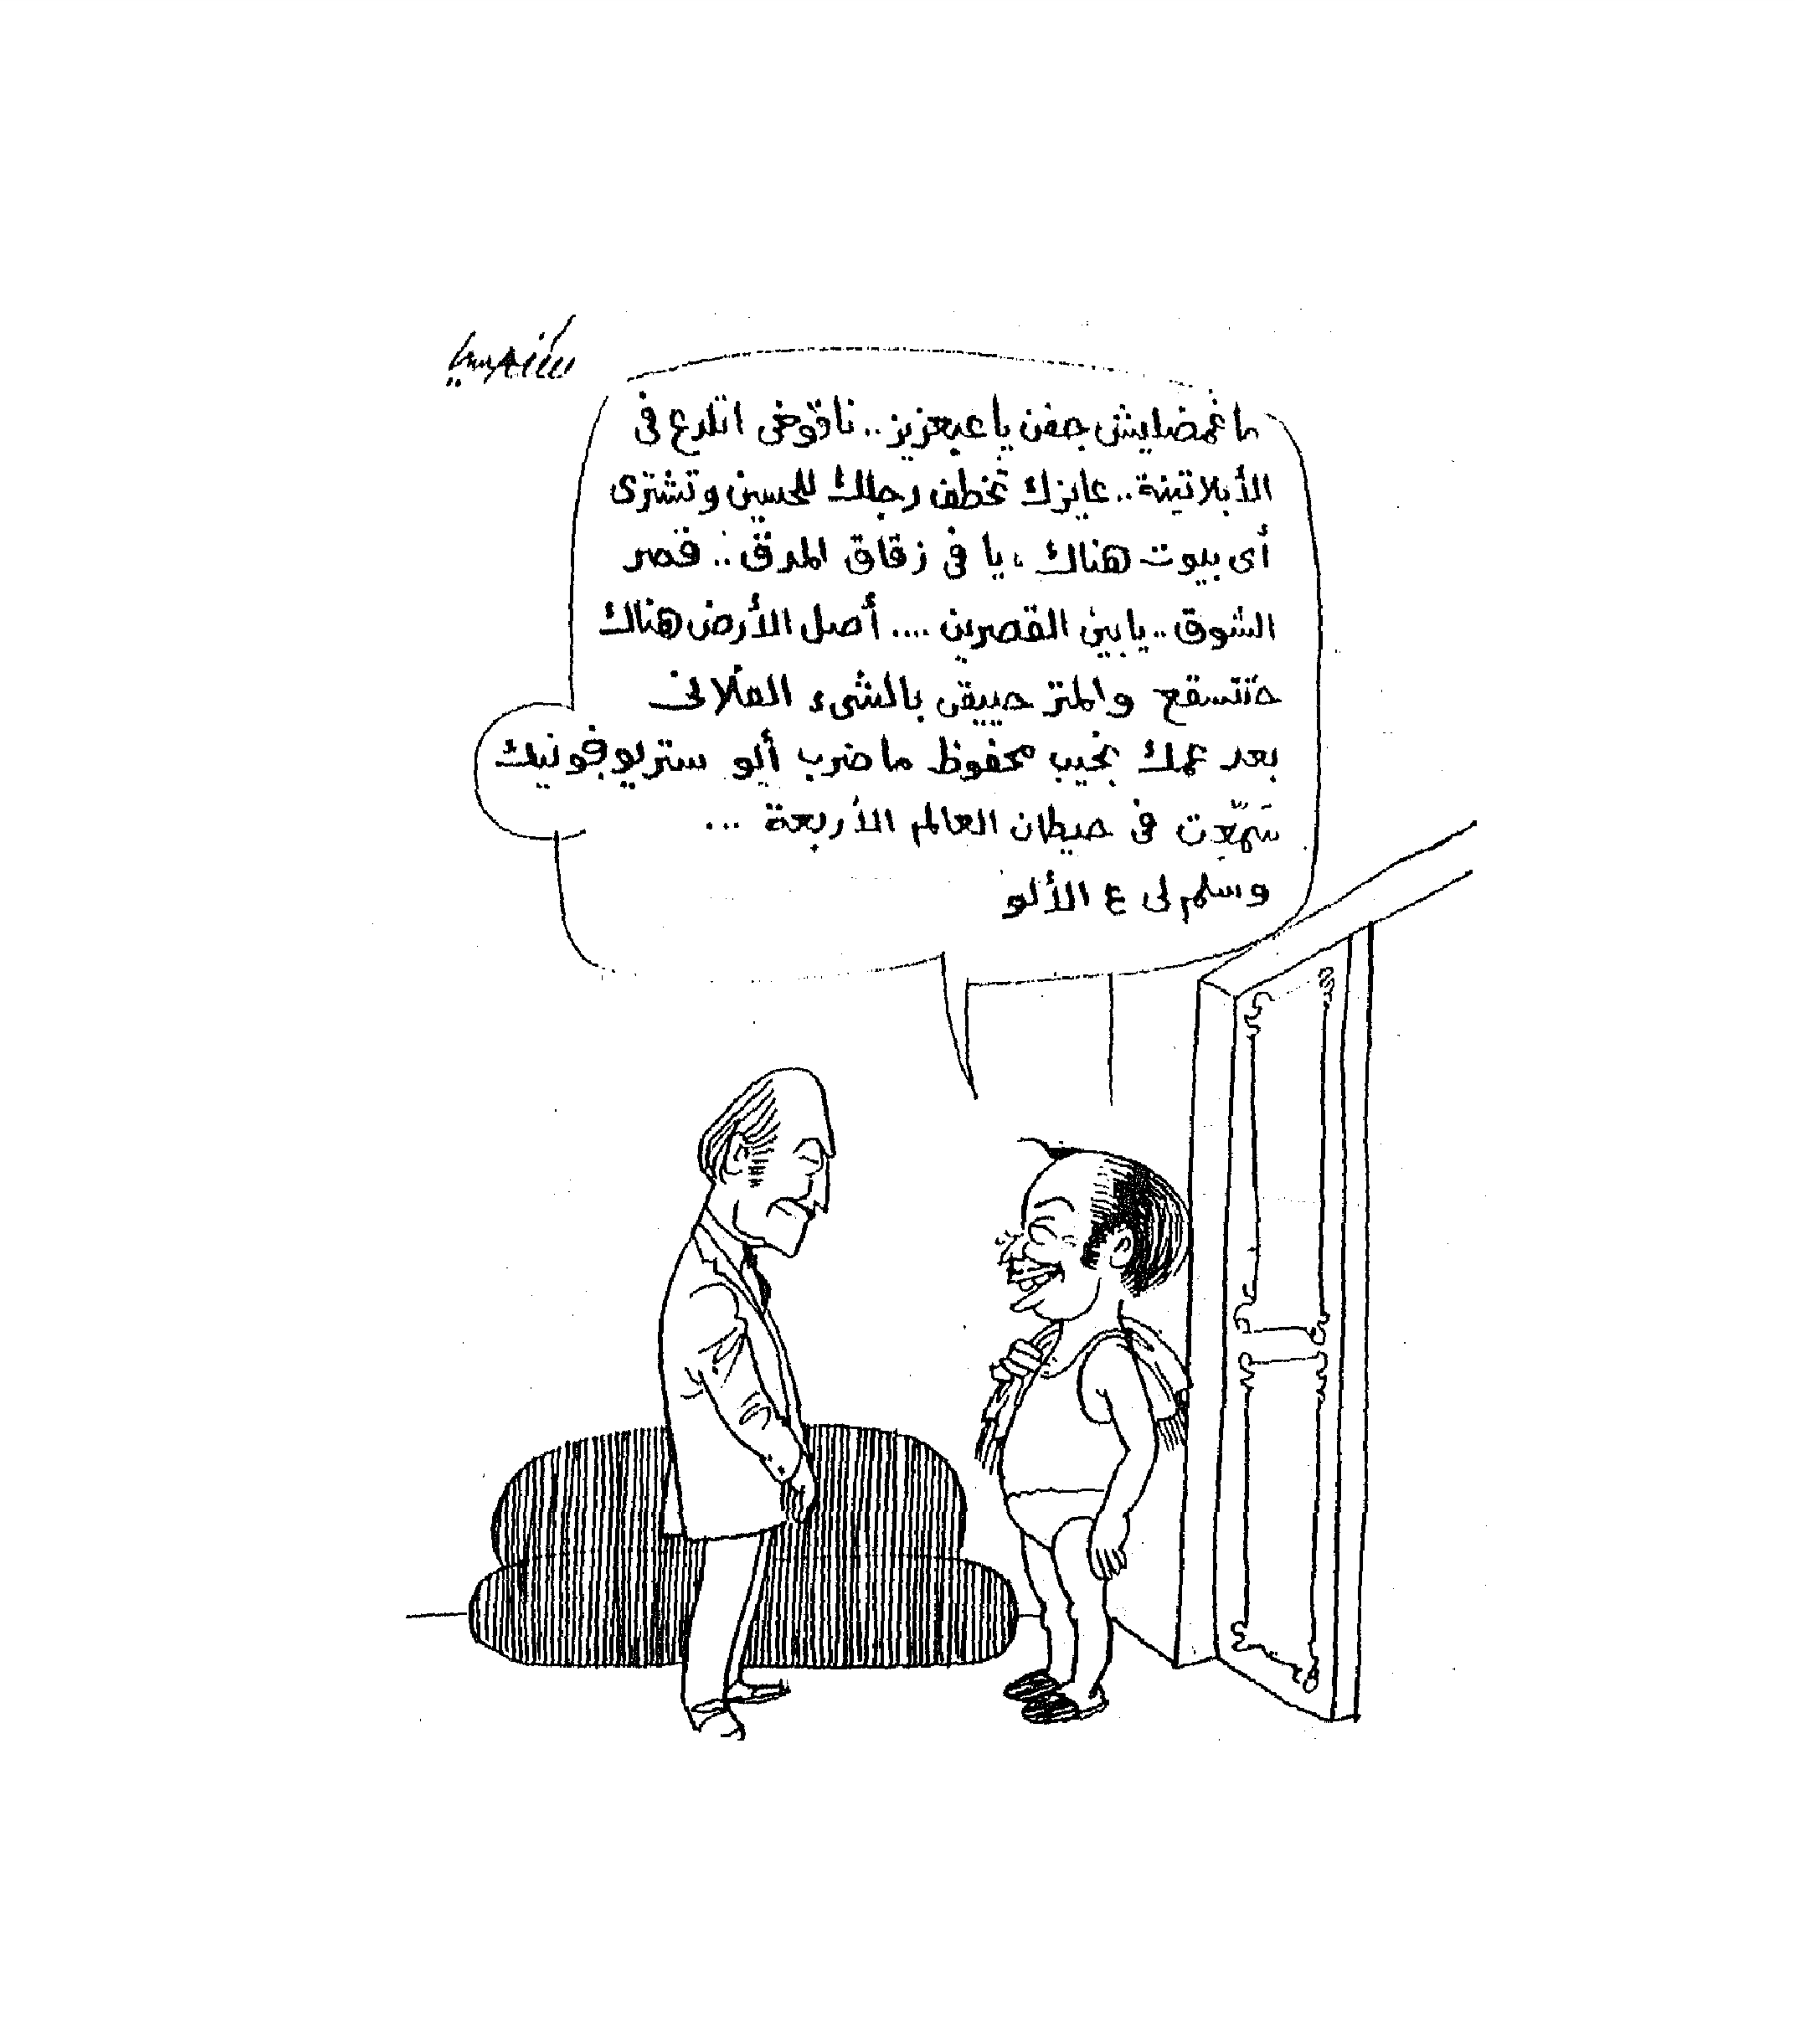 ما غمضليش جفن يا عبعزيز.. نافوخى اتلدع فى
الأبلاتينة.. عايزك تخطف رجلك للحسين وتشترى
أى بيوت هناك، يا فى زقاق المدق.. قصر
الشوق.. يا بين القصرين .... أصل الأرض هناك
حتتسقع والمتر حيبقى بالشىء الفلانى
بعد عمك نجيب محفوظ ما ضرب ألو ستريوفونيك
سَمّعِت فى حيطان العالم الأربعة ...
وسلم لى ع الألو